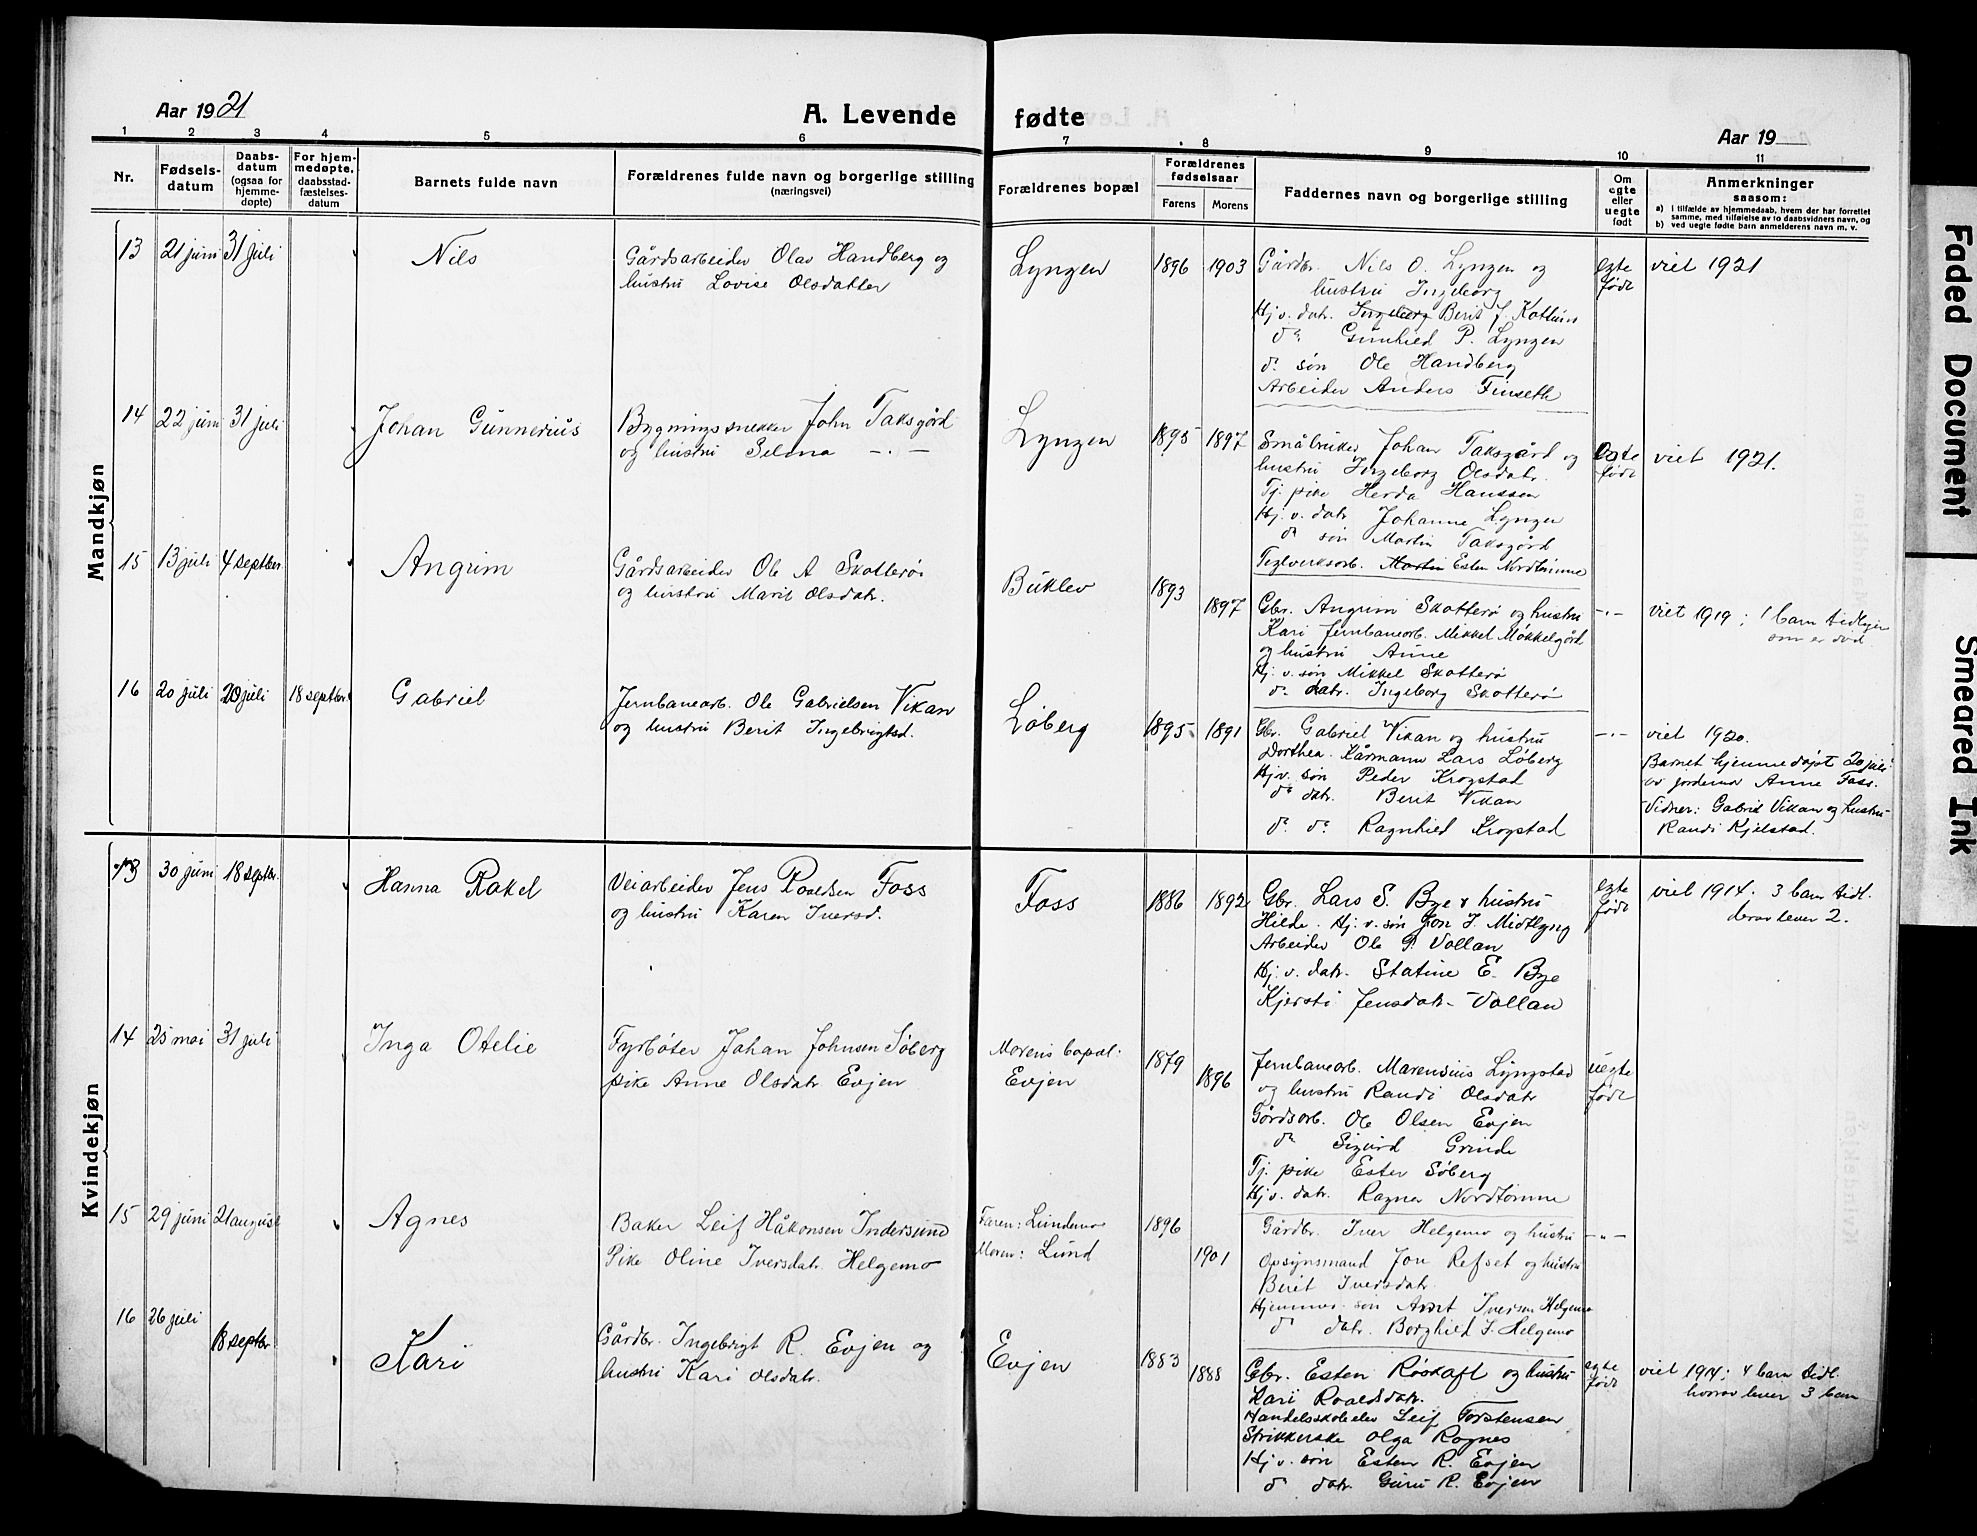 Aar 1921
A. Levende fødte
Aar 19
1 2 3 4 5 6 7 8 9 10 11
Nr.
Fødsels-
datum
Daabs-
datum
(ogsaa for
hjemme-
døpte)
For hjem-
medøpte,
daabsstad-
fæstelses-
datum
Barnets fulde navn
Forældrenes fulde navn og borgerlige stilling
(næringsvei)
Forældrenes bopæl
Forældrenes
fødselsaar
Farens Morens
Faddernes navn og borgerlige stilling
Om
egte
eller
uegte
født
Anmerkninger
saasom:
a) I tilfælde av hjemmedaab, hvem der har forrettet
samme, med tilføielse av to daabsvidners navn, og
b) ved uegte fødte barn anmelderens navn m. v.
Mandkjøn
13 21 juni 31 juli Nils
Gårdsarbeider Olav Handberg og
hustru Lovise Olsdatter
Lyngen 1896 1903
Gårdbr. Nils O. Lyngen og
hustru Ingeborg
Hj. v. datr. Ingeborg Berit J. Kotlum
do Gunhild P. Lyngen
do søn Ole Handberg
Arbeider Anders Finseth
egte
født
viet 1921
14 22 juni 31 juli Johan Gunnerius
Bygningssnekker John Taksgård
og hustru Selma -.-
Lyngen 1895 1897
Småbruker Johan Taksgård og
hustru Ingeborg Olsdatr.
Tj. pike Herda Hanssen
Hj. v. datr Johanne Lyngen
do søn Martin Taksgård
Teglverksarb. Martin Esten Nordtømme
egte
født
viet 1921.
15 13 juli 4 septber Angrim
Gårdsarbeider Ole A Skotterø
og hustru Marit Olsdatr.
Buklev 1893 1897
Gbr. Angrim Skotterø og hustru
Kari Jernbanearb. Mikkel Møkkelgård
og hustru Anne
Hj. v. søn Mikkel Skotterø
do datr. Ingeborg Skotterø
-.-
viet 1919; 1 barn tidligere
som er død
16 20 juli 20 juli 18 septber Gabriel
Jernbanearb. Ole Gabrielsen Vikan
og hustru Berit Ingebrigtsd.
Løberg 1895 1891
Gbr. Gabriel Vikan og hustru
Dorthea. Kårmann Lars Løberg
Hj v. søn Peder Krogstad
do datr. Berit Vikan
do do Ragnhild Krogstad
-.-
viet 1920.
Barnet hjemmedøpt 20 juli
av jordemor Anne Foss.
Vidner: Gabriel Vikan og hustru
Randi Kjelstad.
Kvindekjøn
13 30 juni 18 septbr. Hanna Rakel
Veiarbeider Jens Roaldsen Foss
og hustru Karen Iversd.
Foss 1886 1892
Gbr. Lars S. Bye & hustru
Hilde. Hj. v. søn Jon J. Midtlyng
Arbeider Ole P. Vollan
Hj. v. datr. Statine E. Bye
Kjersti Jensdatr. Vollan
egte
født
viet 1914. 3 barn tidl.
derav lever 2.
14 25 mai 31 juli Inga Otelie
Fyrbøter Johan Johnsen Søberg
pike Anne Olsdatr Evjen
Morens bopæl:
Evjen 1879 1896
Jernbanearb. Marensius Lyngstad
og hustru Randi Olsdatr
Gårdsarb. Ole Olsen Evjen
do Sigurd Grinde
Tj. pike Ester Søberg
Hj v. datr. Ragna Nordtømme
uegte
født
15 29 juni 21 august Agnes
Baker Leif Håkonsen Indersund
Pike Oline Iversdatr. Helgemo
Faren: Lundemo
Moren: Lund
1896 1901
Gårdbr. Iver Helgemo og hustru
Opsynsmand Jon Refset og hustru
Berit Iversdatr.
Hjemmev. søn Arnt Iversen Helgemo
do datr. Borghild I. Helgemo
-"-
16 26 juli 18 septbr Kari
Gårdbr. Ingebrigt R. Evjen og
hustru Kari Olsdatr.
Evjen 1883 1888
Gbr. Esten Røskaft og hustru
Kari Roaldsdatr.
Handelsskoleelev Leif Torstensen
Strikkerske Olga Rognes
Hj v. søn Esten R. Evjen
do datr. Guru R. Evjen
egte
født
viet 1914; 4 barn tidl.
hvorav lever 3 barn
Faded Document
Smeared Ink